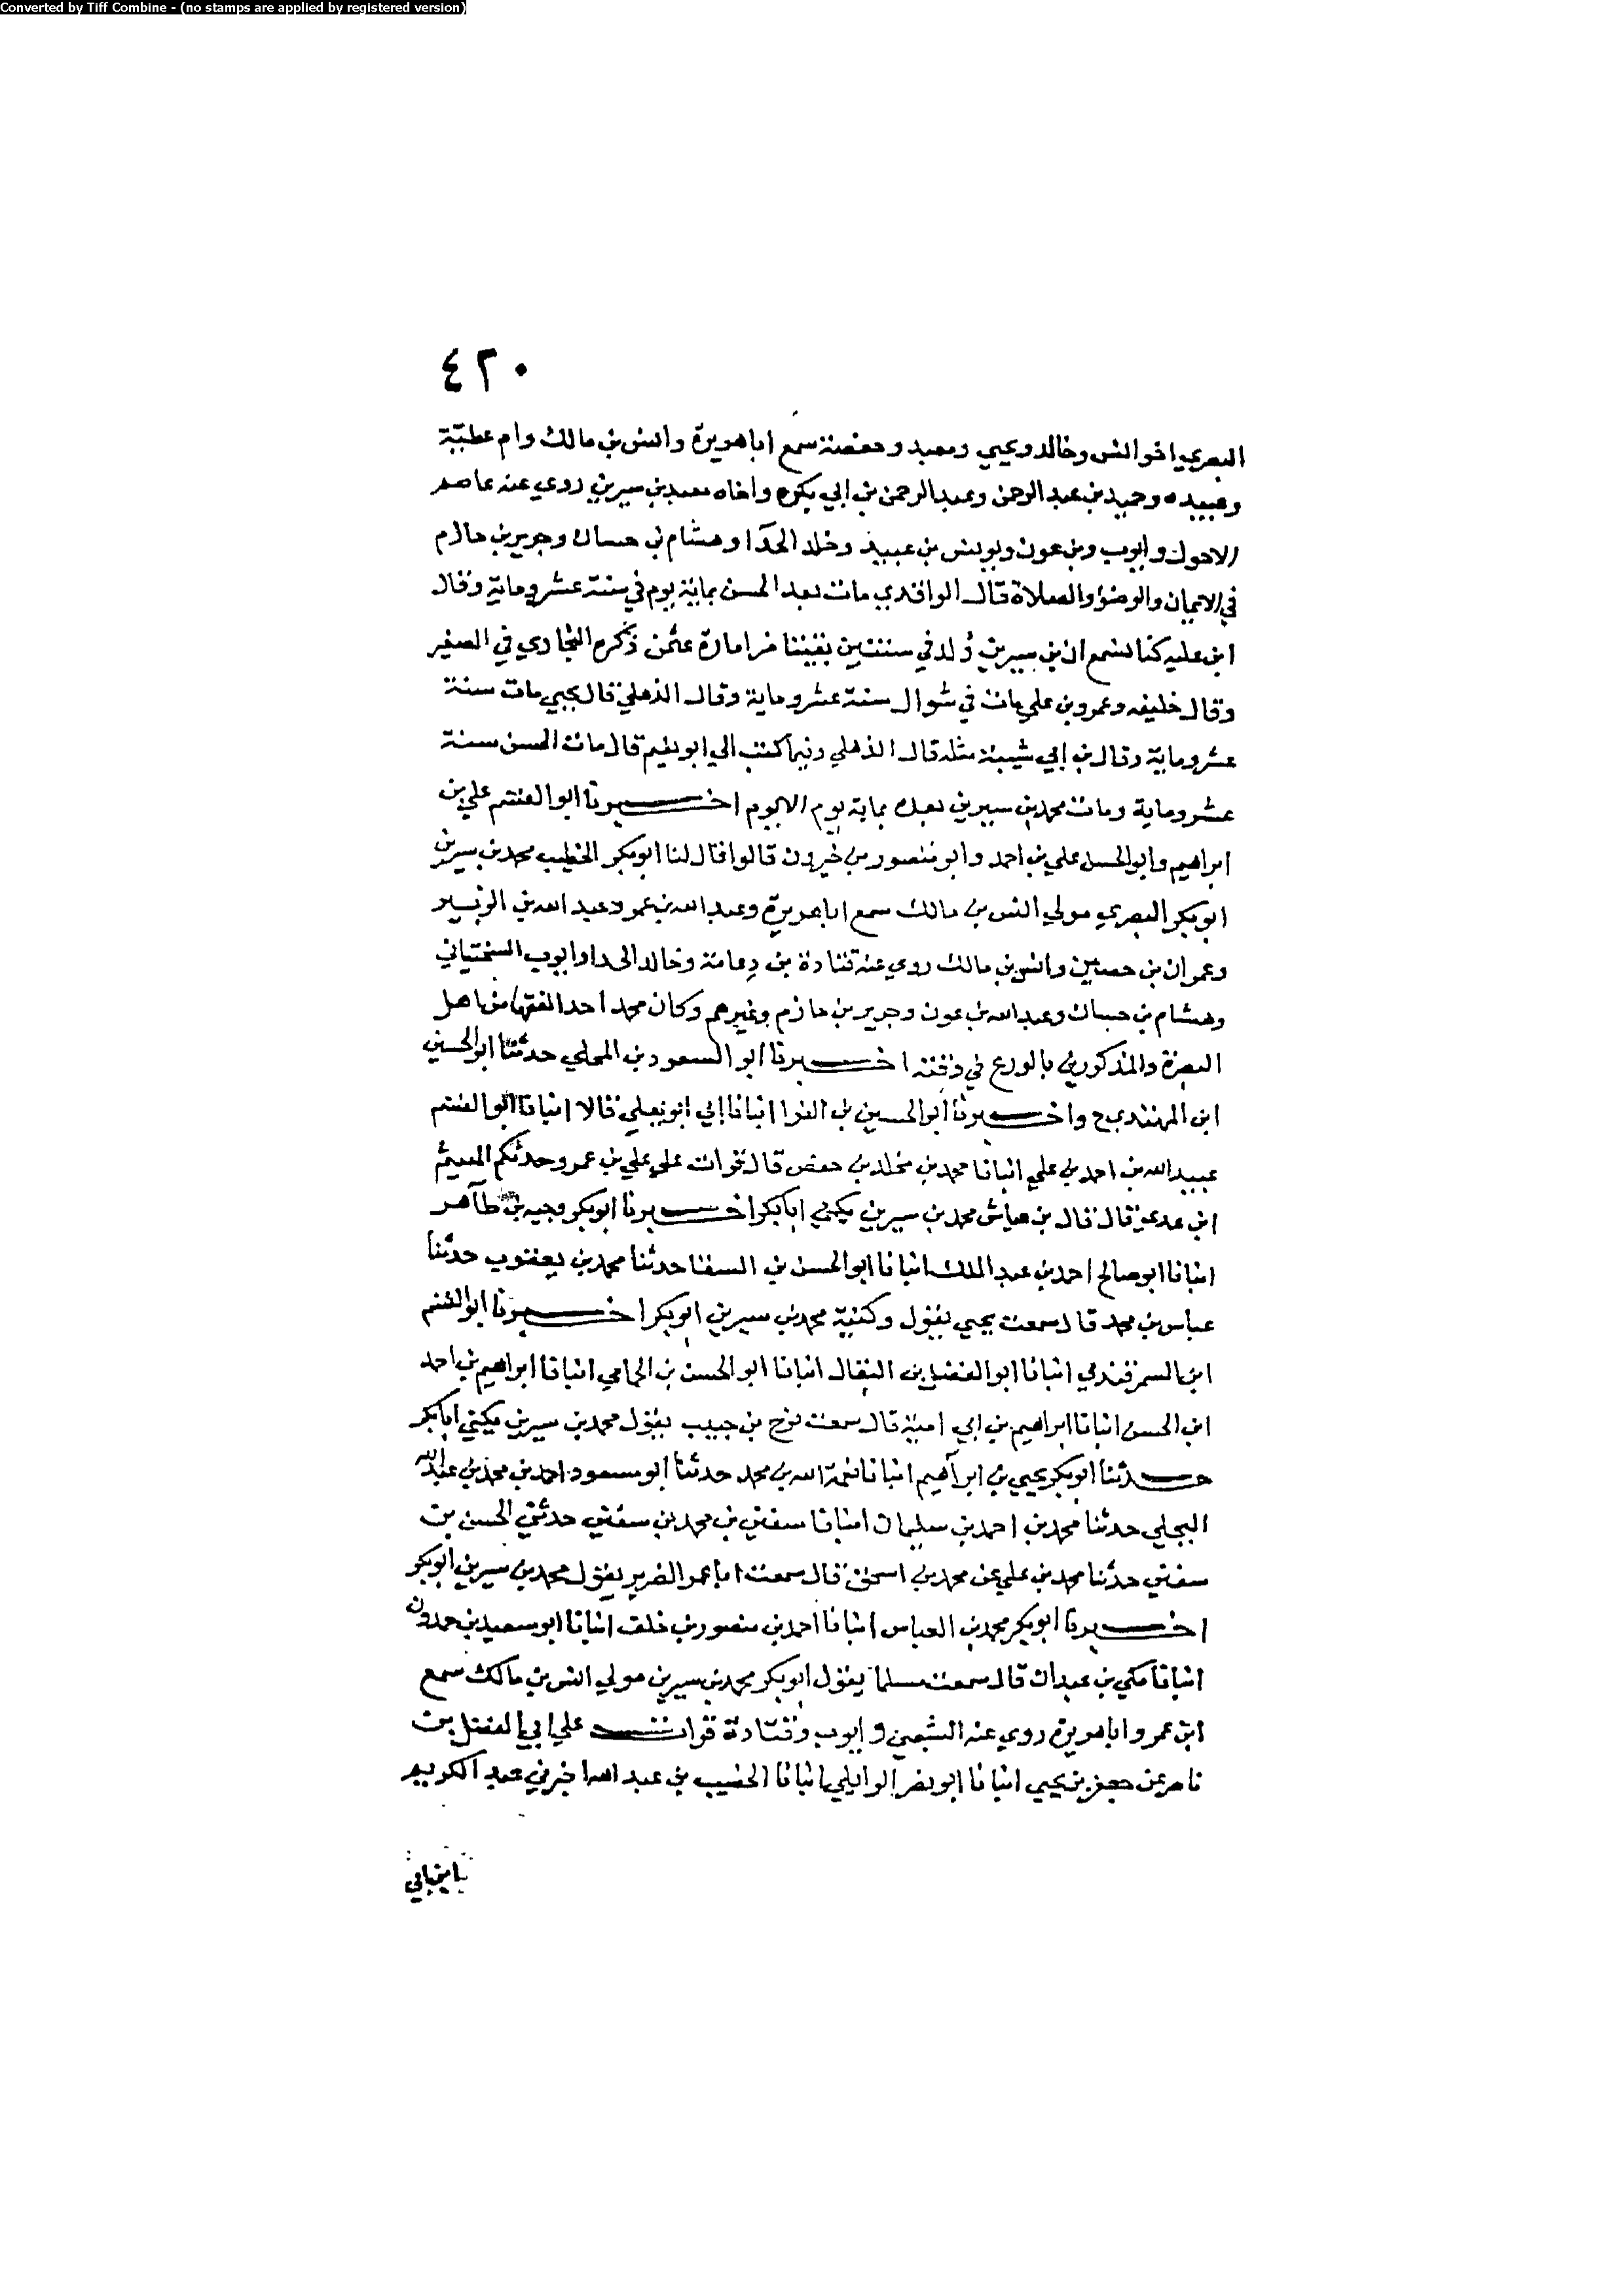 Converted by Tiff Combine - (no stamps are applied by registered version)
٤٢٠
البصري اخو انس وخالد ويحيي ومعبد وحفصة سمع اباهويرة وانس بن مالك وام عطية
وعبيده وحميد بن عبد الرحمن وعبد الرحمن بن ابي بكره واخاه معبد بن سيرين روي عنه عاصم
الاحول وايوب وبن عون ويونس بن عبيد وخلد الحذا وهشام بن حسان وجرير بن حازم
في الايمان والوضؤ والصلاة قال الواقدي مات بعد الحسن بماية يوم في سنة عشر وماية وقال
ابن عليه كنا نسمع ان بن سيرين ولد في سنتين بقيتا من امارة عثمن ذكره البخاري في الصغير
وقال خليفه وعمرو بن علي مات في شوال سنة عشر وماية وقال الذهلي قال يحيي مات سنة
عشر وماية وقال بن ابي شيبة مثله قال الذهلي وفيما كتب الي ابو نعيم قال مات الحسن سنة
عشر وماية ومات محمد بن سيرين بعده بماية يوم الا يوم اخـــبرنا ابو القسم علي بن
ابراهيم وابو الحسن علي بن احمد وابو منصور بن خيرون قالوا قال لنا ابو بكر الخطيب محمد بن سيرين
ابو بكر البصري مولي انس بن مالك سمع اباهريرة وعبد الله بن عمر وعبد الله بن الزبير
وعمران بن حصين وانس بن مالك روي عنه قتادة بن دعامة وخالد الحذا وايوب السختياني
وهشام بن حسان وعبد الله بن عون وجرير بن حازم وغيرهم وكان محمد احد الفقها من اهل
البصرة والمذكورين بالورع في وقته اخـــبرنا ابو السعود بن المجلي حدثنا ابو الحسين
ابن المهتدي ح واخـــبرنا ابو الحسين بن الفرا انبانا ابي ابو يعلي قالا انبانا ابو القسم
عبيد الله بن احمد بن علي انبانا محمد بن مخلد بن حفص قال قرات علي علي بن عمرو حدثكم الهيثم
ابن عدي قال قال بن عياش محمد بن سيرين يكني ابابكر اخـــبرنا ابو بكر وجيه بن طاهر
انبانا ابو صالح احمد بن عبد الملك انبانا ابو الحسن بن السقا حدثنا محمد بن يعقوب حدثنا
عباس بن محمد قال سمعت يحيي يقول وكنية محمد بن سيرين ابو بكر اخـــبرنا ابو القسم
ابن السمرقندي انبانا ابو الفضل بن البقال انبانا ابو الحسن بن الحمامي انبانا ابراهيم بن احمد
ابن الحسن انبانا ابراهيم بن ابي امية قال سمعت نوح بن حبيب يقول محمد بن سيرين يكني ابابكر
حـــدثنا ابو بكر يحيي بن ابراهيم انبانا نعمة الله بن محمد حدثنا ابو مسعود احمد بن محمد بن عبد الله
البجلي حدثنا محمد بن احمد بن سليمان انبانا سفين بن محمد بن سفين حدثني الحسن بن
سفين حدثنا محمد بن علي عن محمد بن اسحق قال سمعت اباعمر الضرير يقول محمد بن سيرين ابو بكر
اخـــبرنا ابو بكر محمد بن العباس انبانا احمد بن منصور بن خلف انبانا ابو سعيد بن حمدون
انبانا مكي بن عبدان قال سمعت مسلما يقول ابو بكر محمد بن سيرين مولي انس بن مالك سمع
ابن عمر واباهريرة روي عنه الشعبي و ايوب وقتادة قراتـــ علي ابي الفضل بن
ناصر عن جعفر بن يحيي انبانا ابو نصر الوايلي انبانا الخصيب بن عبد الله اخبرني عبد الكريم